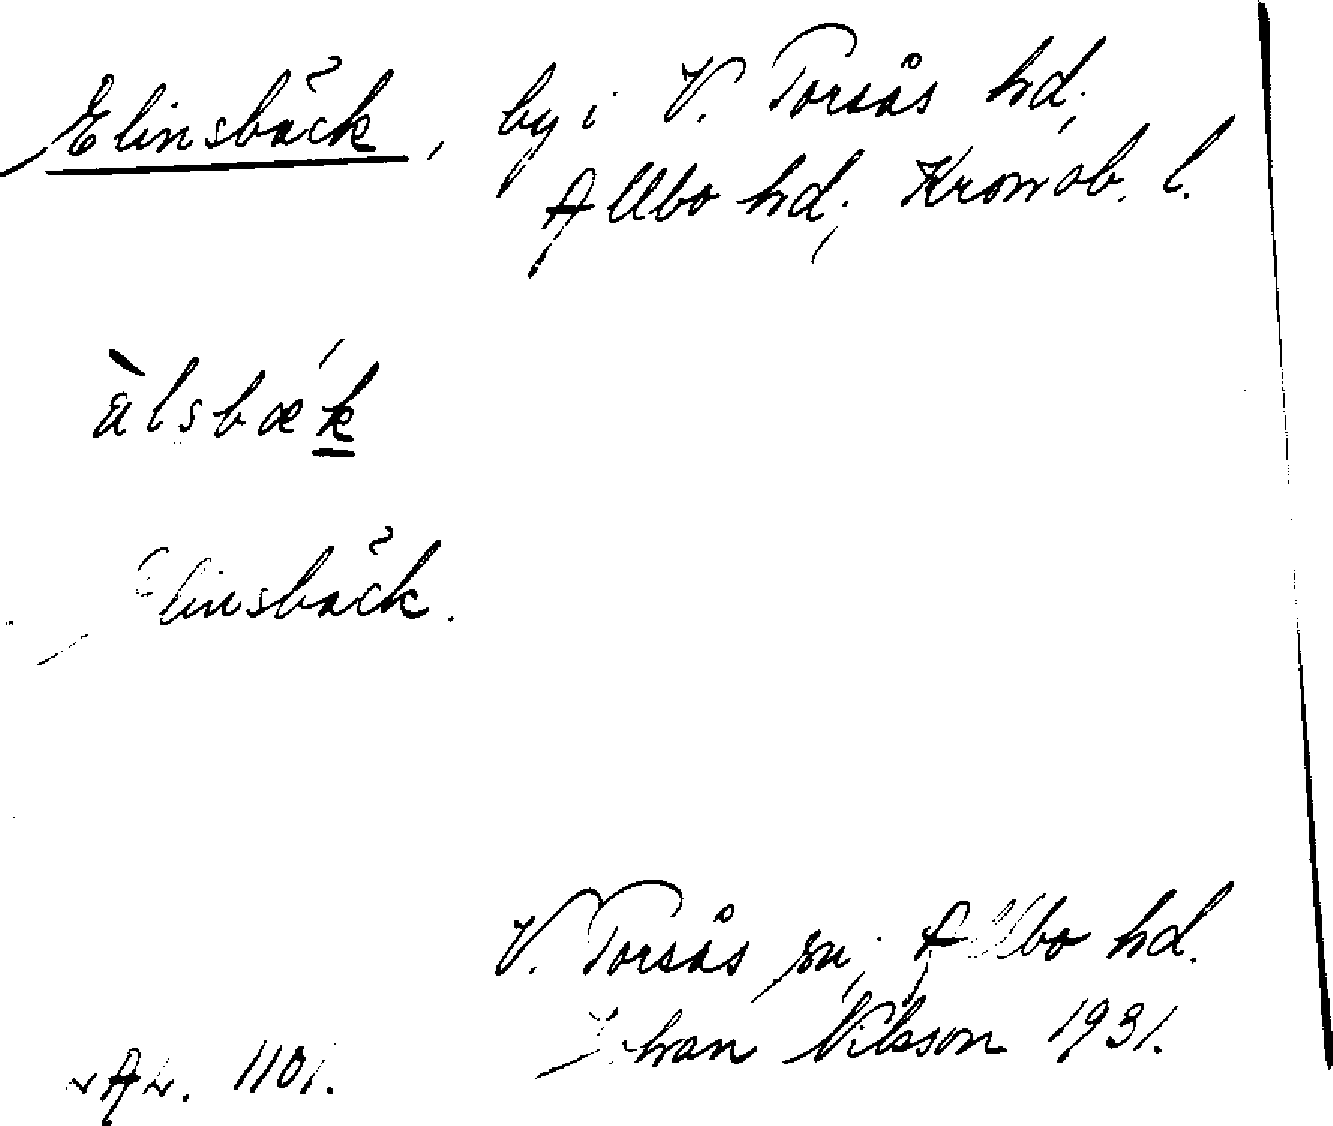 Elinsbäck, by i V. Torsås hd.,
Allbo hd., Kronob. l.
àlsbæ´k
Elinsbäck.
V. Torsås sn., Allbo hd.
Johan Nilsson 1931.
1101.